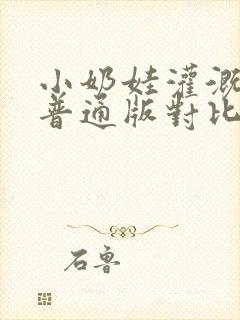 小奶娃灌溉
普通版對比
石魯